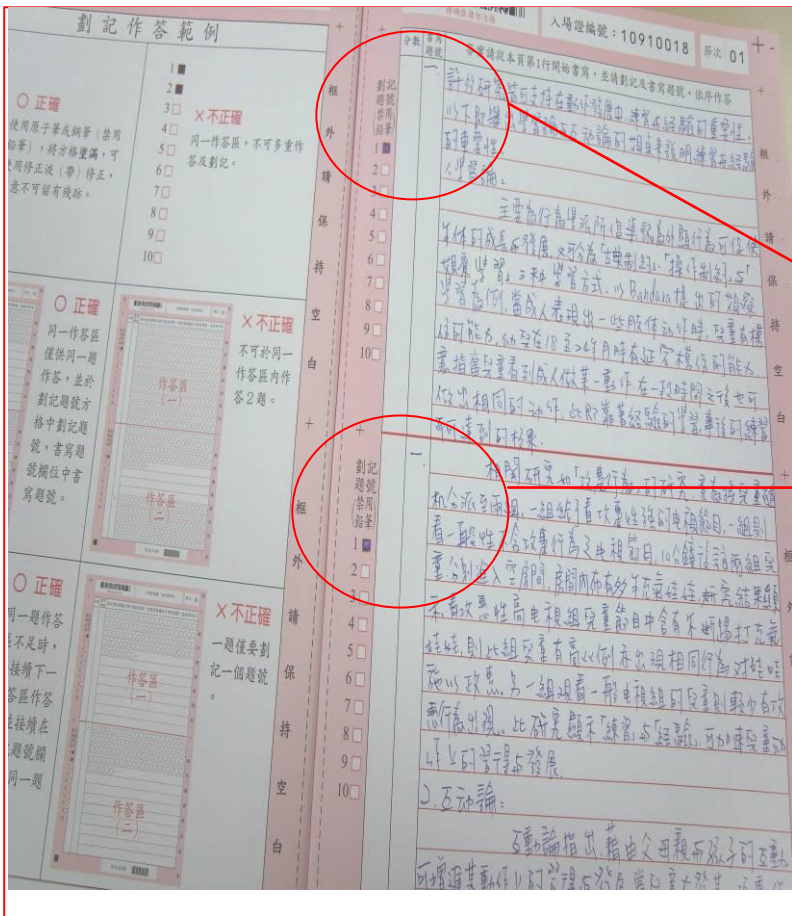 劃記作答範例
○ 正確
使用原子筆或鋼筆(禁用
鉛筆),將方格塗滿,可
使用修正液(帶)修正,
意不可留有殘跡。
1■
2■
3□
4□
5□
6□
7□
8□
9□
10□
×不正確
同一作答區,不可多重作
答及劃記。
○ 正確
同一作答區
僅供同一題
作答,並於
劃記題號方
格中劃記題
號,書寫題
號欄位中書
寫題號。
作答區
(一)
作答區
(二)
×不正確
不可於同一
作答區內作
答2題。
○ 正確
同一題作答
區不足時,
接續下一
答區作答
並接續在
題號欄
同一題
作答區
(一)
作答區
(二)
×不正確
一題僅要劃
記一個題號
。
框外請保持空白
框外請保持空白
入場證編號:10910018
節次 01
分數
題號
答案請從本頁第1行開始書寫,並請劃記及書寫題號,依序作答
劃記
題號
禁用
鉛筆
1■
2□
3□
4□
5□
6□
7□
8□
9□
10□
一、
許多研究皆可支持在動作發展中,練習與經驗的重要性,
以下即舉出學習論與互動論的觀點來說明練習與經驗
的重要性
1.學習論:
主要為行為學派所倡導,認為外顯行為可促使
個體的成長與發展,又可分為「古典制約」、「操作制約」與「
觀察學習」三種學習方式,以Bandura提出的觀察
學習為例,當成人表現出一些肢體動作時,兒童有模
仿的能力,幼兒在18至24個月時有延宕模仿的能力,
意指當兒童看到成人做某一動作,在一段時間之後也可
做出相同的動作,此即靠著經驗的學習,事後的練習
而可達到的效果。
劃記
題號
禁用
鉛筆
1■
2□
3□
4□
5□
6□
7□
8□
9□
10□
一、
相關研究如「攻擊行為」的研究,
機分派至兩組,一組給予看攻擊性強的电視節目,一組則
看一般性不含攻擊行為之电視節目,10分鐘後請兩組兒
童分別進入空房間,房間內佈有許多充氣娃娃,研究結果顯
示看攻擊性高电視組兒童節目中含有不斷揚打充氣
娃娃,則此組兒童有高比例亦出現相同行為,對娃娃
施以攻擊,另一組觀看一般电視組的兒童則較少有攻
擊行為出現,此研究顯示「練習」與「經驗」可加速兒童動
作上的習得與發展
2.互动論:
互動論指出,藉由父母親和孩子的互動
可增進其動作上的習得與發展
框外請保持空白